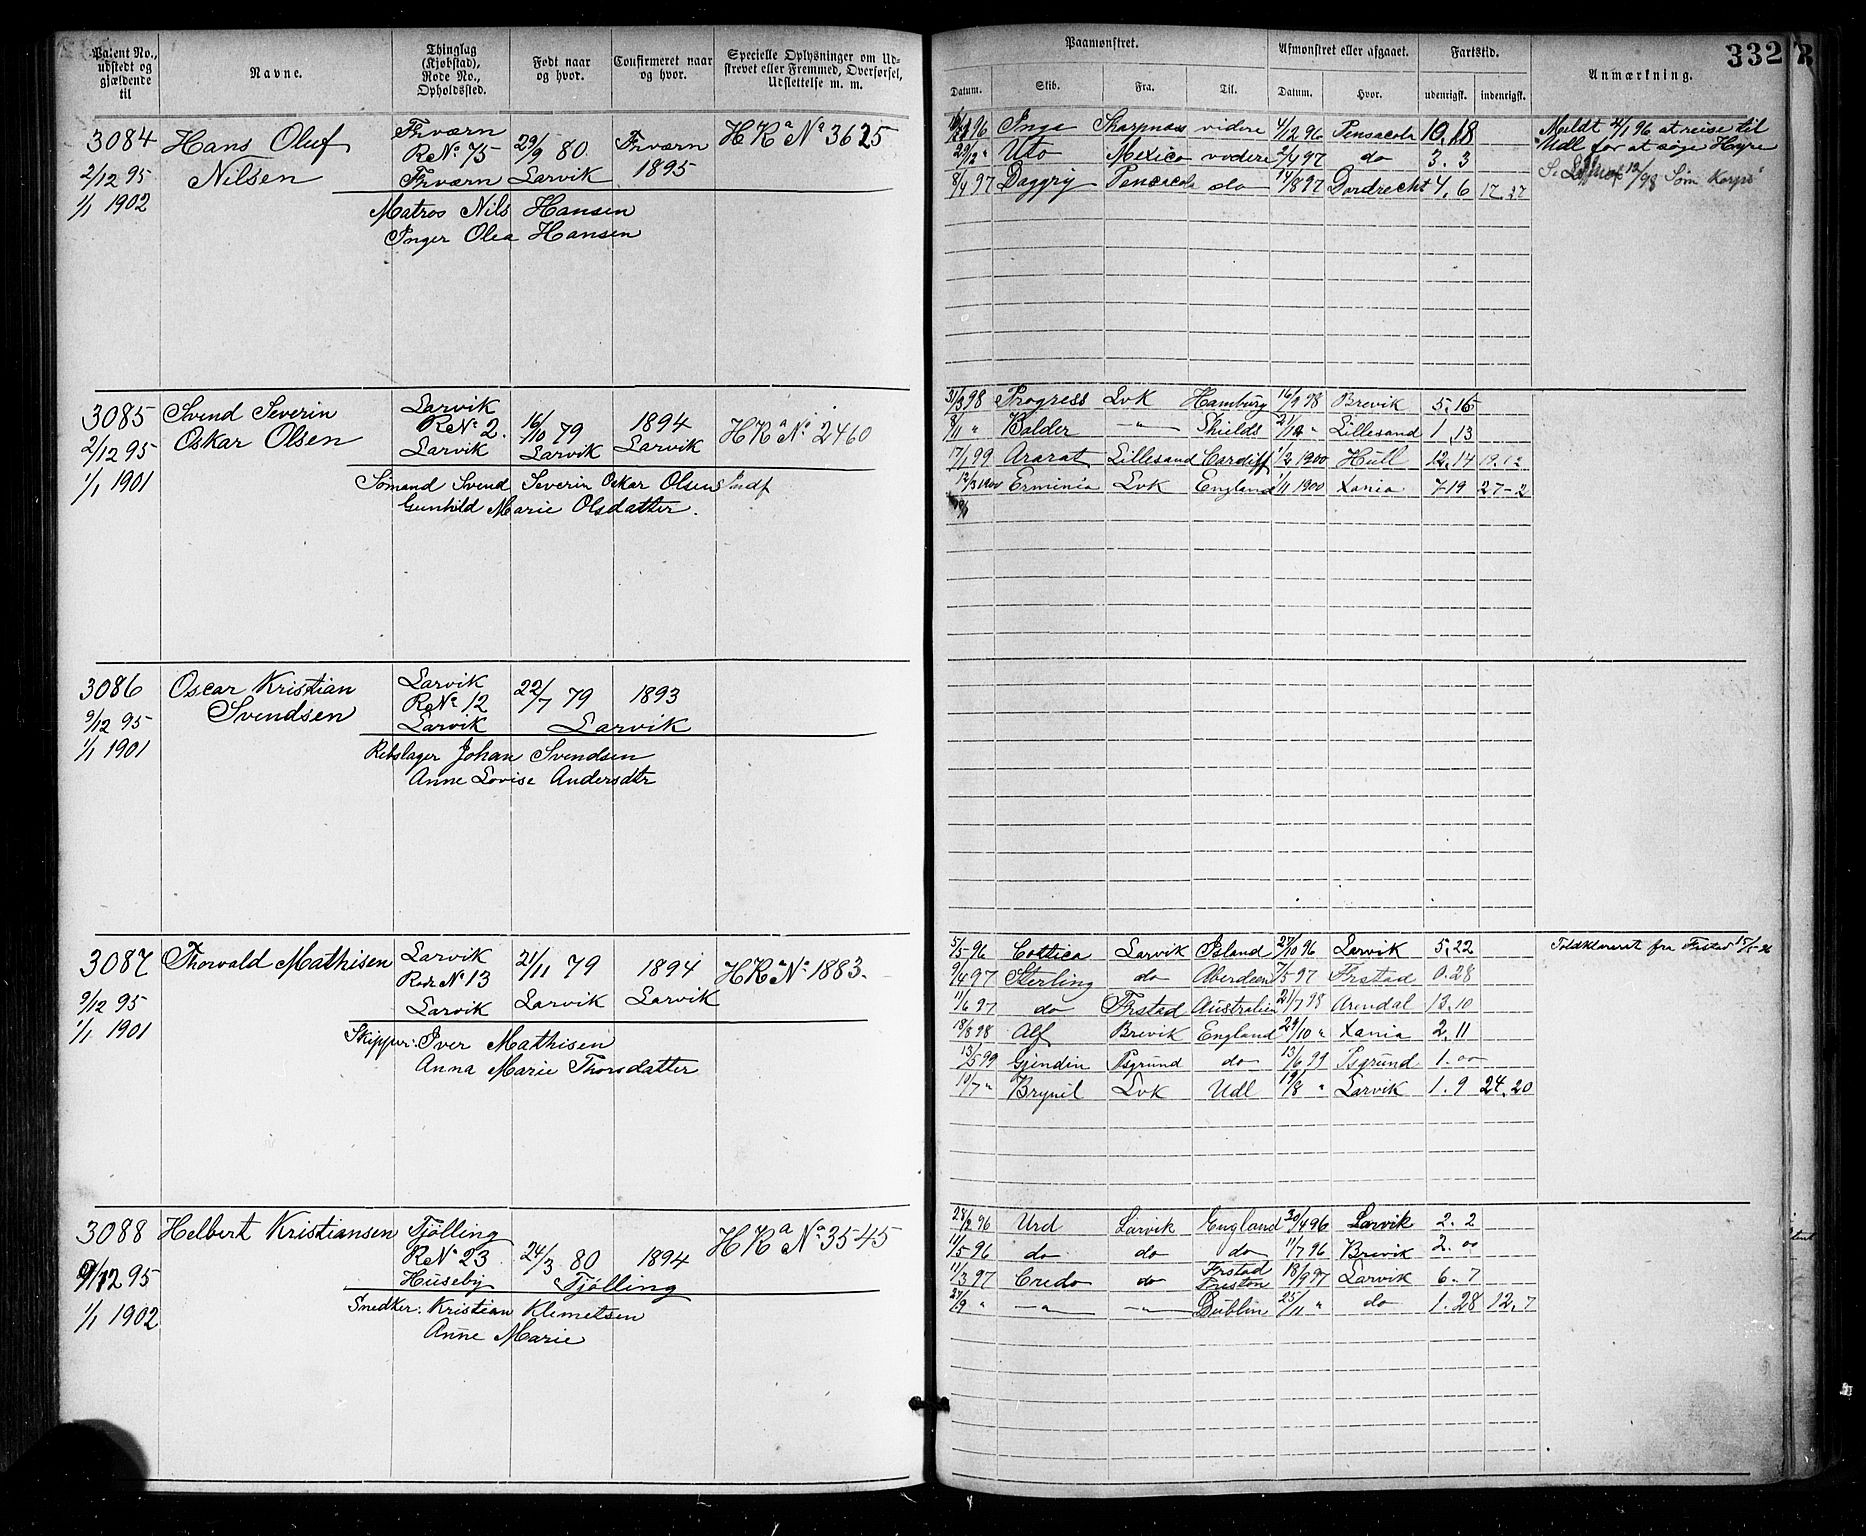 Patent No., udstedt og gjældende til
Navne.
Thinglag (Kjøbstad), Rode No., Opholdssted.
Født naar og hvor.
Confirmeret naar og hvor.
Specielle Oplysninger om Udstrevet eller Fremmed, Overførsel, Udslettelse m. m.
Paamønstret.
Afmønstret eller afgaaet.
Fartstid.
Anmærkning.
332
Datum. Skib. Fra. Til. Datum. Hvor. udenrigsk. indenrigsk.
3084 Hans Oluf Frværn 29/9 80 Frværn HRa No 3625
2/12 95 Nilsen R No 75 Larvik 1895
1/1 1902 Frværn
Matros Nils Hansen
Inger Olea Hansen
96 Inga Skarpnæs videre 4/12 96 Pensacola 10.18
22/12 " Uto Mexico videre 2/4 97 do 3. 3
8/4 97 Daggry Pensacola do 14/8 97 Dordrecht 4. 6 17. 27
Meldt 2/1 96 at reise til
Udl for at søge Hyre
3085 Svend Severin Larvik 16/10 79 1894 HRa No 2460
2/12 95 Oskar Olsen R No 2. Larvik Larvik
1/1 1901 Larvik
Sømand Svend Severin Oskar Olsen Indf
Gunhild Marie Olsdatter.
31/3 98 Progress Lvk Hamburg 16/9 98 Brevik 5. 15
8/11 " Balder -"- Shields 21/12 " Lillesand 1. 13
17/1 99 Ararat Lillesand Cardiff 1/2 1900 Hull 12. 14 19. 12
12/3 1900 Erminia Lvk England 1/11 1900 Xania 7-19 27-2
3086 Oscar Kristian Larvik 22/7 79 1893
9/12 95 Svendsen R No 12 Larvik
1/1 1901 Larvik
Rebslager Johan Svendsen
Anne Lovise Andersdtr
3087 Thorvald Mathisen Larvik 21/11 79 1894 HRa No 1883.
9/12 95 Rode No 13 Larvik Larvik
1/1 1901 Larvik
Skipper: Iver Mathisen
Anna Marie Thorsdatter
5/5 96 Cottica Larvik Island 27/10 96 Larvik 5. 22
9/4 97 Sterling do Aberdeen 7/5 97 Frstad 0. 28
11/6 97 do Frstad Australien 21/7 98 Arendal 13. 10
18/8 98 Alf Brevik England 29/10 " Xania 2. 11
13/5 99 Gjendin Psgrund do 13/6 99 Psgrund 1. 00
10/7 " Brynil Lvk Udl 19/8 " Larvik 1. 9 24. 20
Toldklareret fra Frstad 15/5 96
3088 Helbert Kristiansen Tjölling 24/3 80 1894 HRa No 3545
9/12 95 R No 23 Tjölling
1/1 1902 Huseby
Snedker: Kristian Klemetsen
Anne Marie
28/2 96 Urd Larvik England 30/4 96 Larvik 2. 2
11/5 96 do do do 11/7 96 Brevik 2. 00
11/3 97 Credo do Frstad Preston 13/9 97 Larvik 6. 7
27/9 " -"- -"- Dublin 25/11 " do 1. 28 12. 7